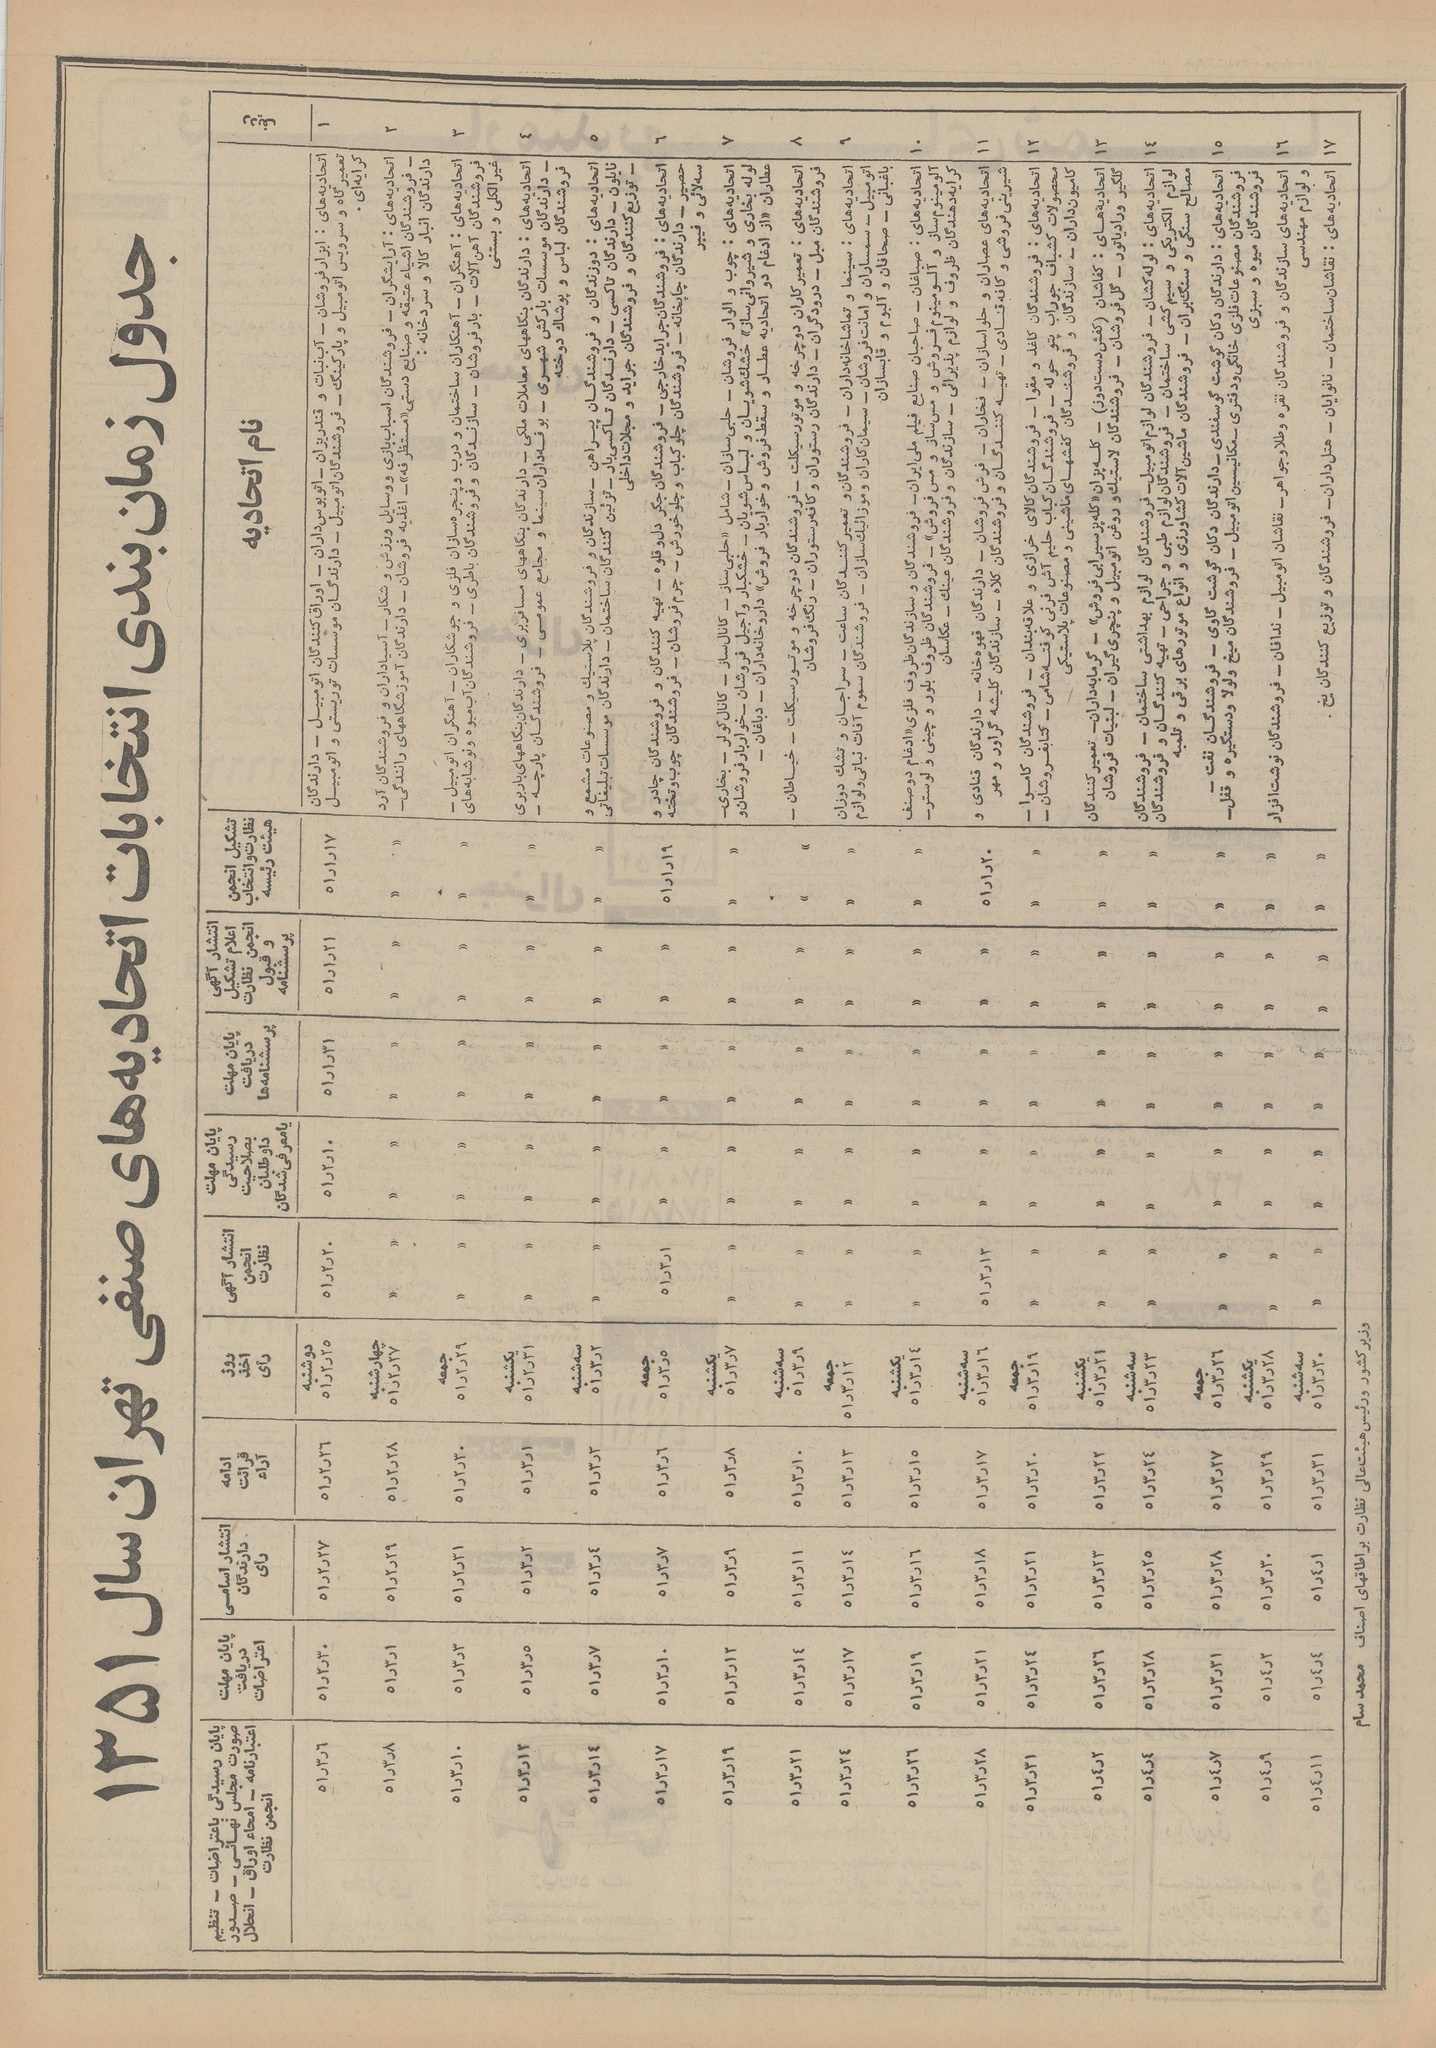 جدول زمان‌بندی انتخابات اتحادیه‌های صنفی تهران سال ۱۳۵۱
نام اتحادیه
تشکیل انجمن نظارت و انتخاب هیئت رئیسه
انتشار آگهی اعلام تشکیل انجمن نظارت و قبول پرسشنامه
پایان مهلت دریافت پرسشنامه‌ها
پایان مهلت رسیدگی بصلاحیت داوطلبان یا معرفی‌شدگان
انتشار آگهی انجمن نظارت
روز اخذ رای
ادامه قرائت آراء
انتشار اسامی دارندگان رای
پایان مهلت دریافت اعتراضات
پایان رسیدگی باعتراضات – تنظیم صورت مجلس نهائی – صدور اعتبارنامه – امحاء اوراق – انحلال انجمن نظارت
۱ اتحادیه‌های : ابزارفروشان – آب‌نبات و قندریزان – اتوبوس‌داران – اوراق‌کنندگان اتومبیل – دارندگان
تعمیرگاه و سرویس اتومبیل و پارکینگ – فروشندگان اتومبیل – دارندگان موسسات توریستی و اتومبیل
کرایه‌ای .
۵۱ر۱ر۱۷ ۵۱ر۱ر۲۱ ۵۱ر۱ر۳۱ ۵۱ر۲ر۱۰ ۵۱ر۲ر۲۰ دوشنبه ۵۱ر۲ر۲۵ ۵۱ر۲ر۲۶ ۵۱ر۲ر۲۷ ۵۱ر۲ر۳۰ ۵۱ر۳ر۶
۲ اتحادیه‌های : آرایشگران – فروشندگان اسباب‌بازی و وسایل ورزش و شکار – آسیاداران و فروشندگان آرد
– فروشندگان اشیاء عتیقه و صنایع دستی «مستظرفه» – اغذیه فروشان – دارندگان آموزشگاههای رانندگی –
دارندگان انبار کالا و سردخانه :
« « « « « « « « « « چهارشنبه ۵۱ر۲ر۲۷ ۵۱ر۲ر۲۸ ۵۱ر۲ر۲۹ ۵۱ر۳ر۱ ۵۱ر۳ر۸
۳ اتحادیه‌های : آهنگران – آهنکاران ساختمان و درب و پنجره‌سازان فلزی و جوشکاران – آهنگران اتومبیل –
فروشندگان آهن‌آلات – بارفروشان – سازندگان و فروشندگان باطری – فروشندگان آب‌میوه و نوشابه‌های
غیرالکلی و بستنی
« « « « « « « « « « جمعه ۵۱ر۲ر۲۹ ۵۱ر۲ر۳۰ ۵۱ر۲ر۳۱ ۵۱ر۳ر۳ ۵۱ر۳ر۱۰
۴ اتحادیه‌های : دارندگان بنگاههای معاملات ملکی – دارندگان بنگاههای مسافربری – دارندگان بنگاههای باربری
– دارندگان موسسات بارکش شهری – بوفه‌داران سینما و مجامع عمومی – فروشندگان پارچه –
فروشندگان لباس و پوشاک دوخته
« « « « « « « « « « یکشنبه ۵۱ر۲ر۳۱ ۵۱ر۳ر۱ ۵۱ر۳ر۲ ۵۱ر۳ر۵ ۵۱ر۳ر۱۲
۵ اتحادیه‌های : دوزندگان و فروشندگان پیراهن – سازندگان و فروشندگان پلاستیک و مصنوعات مشمع و
نایلون – دارندگان تاکسی – دارندگان تاکسی‌بار – تزئین کنندگان ساختمان – دارندگان موسسات تبلیغاتی
– توزیع‌کنندگان و فروشندگان جراید و مجلات داخلی
« « « « « « « « « « سه‌شنبه ۵۱ر۳ر۲ ۵۱ر۳ر۳ ۵۱ر۳ر۴ ۵۱ر۳ر۷ ۵۱ر۳ر۱۴
۶ اتحادیه‌های : فروشندگان جراید خارجی – فروشندگان جگر دل و قلوه – تهیه کنندگان و فروشندگان چادر و
حصیر – دارندگان چاپخانه – فروشندگان چلوکباب و چلوخورش – چرم‌فروشان – فروشندگان چوب و تخته
سه‌لائی و فیبر
۵۱ر۱ر۱۹ « « « « « « ۵۱ر۳ر۱ جمعه ۵۱ر۳ر۵ ۵۱ر۳ر۶ ۵۱ر۳ر۷ ۵۱ر۳ر۱۰ ۵۱ر۳ر۱۷
۷ اتحادیه‌های : چوب و الوار فروشان – حلبی‌سازان – شامل «حلبی‌ساز – کانال‌ساز – کانال‌کولر – بخاری –
لوله بخاری و شیروانی‌ساز» خشک‌شویان و لباس‌شویان – خشکبار و آجیل فروشان – خواربارفروشان و
عطاران «از ادغام دو اتحادیه عطار و سقط‌فروش و خواربار فروش» داروخانه‌داران – دباغان –
« « « « « « « « « « یکشنبه ۵۱ر۳ر۷ ۵۱ر۳ر۸ ۵۱ر۳ر۹ ۵۱ر۳ر۱۲ ۵۱ر۳ر۱۹
۸ اتحادیه‌های : تعمیرکاران دوچرخه و موتورسیکلت – فروشندگان دوچرخه و موتورسیکلت – خیاطان –
فروشندگان مبل – درودگران – دارندگان رستوران و کافه‌رستوران – رنگ‌فروشان
« « « « « « « « « « سه‌شنبه ۵۱ر۳ر۹ ۵۱ر۳ر۱۰ ۵۱ر۳ر۱۱ ۵۱ر۳ر۱۴ ۵۱ر۳ر۲۱
۹ اتحادیه‌های : سینما و تماشاخانه‌داران – فروشندگان و تعمیرکنندگان ساعت – سراجان و تشک دوزان
اتومبیل – سمساران و امانت‌فروشان – سیمان‌کاران و موزائیک‌سازان – فروشندگان سموم آفات نباتی و لوازم
باغبانی – صحافان و آلبوم و قابسازان
« « « « « « « « « « جمعه ۵۱ر۳ر۱۲ ۵۱ر۳ر۱۳ ۵۱ر۳ر۱۴ ۵۱ر۳ر۱۷ ۵۱ر۳ر۲۴
۱۰ اتحادیه‌های : صباغان – صاحبان صنایع فیلم ملی ایران – فروشندگان و سازندگان ظروف فلزی «ادغام دو صنف
آلومینوم‌ساز و آلومینوم‌فروش و مس‌ساز و مس فروش» – فروشندگان ظروف بلور و چینی و لوستر –
کرایه‌دهندگان ظروف و لوازم پذیرائی – سازندگان و فروشندگان عینک – عکاسان
« « « « « « « « « « یکشنبه ۵۱ر۳ر۱۴ ۵۱ر۳ر۱۵ ۵۱ر۳ر۱۶ ۵۱ر۳ر۱۹ ۵۱ر۳ر۲۶
۱۱ اتحادیه‌های عصاران و حلواسازان – فخاران – فرش فروشان – دارندگان قهوه‌خانه – دارندگان قنادی و
شیرینی‌فروشی و کافه‌قنادی – تهیه کنندگان و فروشندگان کلاه – سازندگان کلیشه گراور و مهر
۵۱ر۱ر۲۰ « « « « « « ۵۱ر۳ر۱۳ سه‌شنبه ۵۱ر۳ر۱۶ ۵۱ر۳ر۱۷ ۵۱ر۳ر۱۸ ۵۱ر۳ر۲۱ ۵۱ر۳ر۲۸
۱۲ اتحادیه‌های : فروشندگان کاغذ و مقوا – فروشندگان کالای خرازی و علاقه‌بندان – فروشندگان کاموا –
محصولات کشباف جوراب پتو حوله – فروشندگان کباب حلیم آش فرنی کوفته‌شامی – کتابفروشان –
کامیون‌داران – سازندگان و فروشندگان کفشهای ماشینی و مصنوعات پلاستیکی
« « « « « « « « « « جمعه ۵۱ر۳ر۱۹ ۵۱ر۳ر۲۰ ۵۱ر۳ر۲۱ ۵۱ر۳ر۲۴ ۵۱ر۳ر۳۱
۱۳ اتحادیه‌های : کفاشان (کفش‌دست‌دوز) – کله‌پزان «کله‌پز سیرابی‌فروش» – گرمابه‌داران – تعمیرکنندگان
گلگیر و رادیاتور – گل‌فروشان – فروشندگان لاستیک و روغن اتومبیل و پنچری‌گیران – لبنیات فروشان
« « « « « « « « « « یکشنبه ۵۱ر۳ر۲۱ ۵۱ر۳ر۲۲ ۵۱ر۳ر۲۳ ۵۱ر۳ر۲۶ ۵۱ر۴ر۲
۱۴ اتحادیه‌های : لوله‌کشان – فروشندگان لوازم اتومبیل – فروشندگان لوازم بهداشتی ساختمان – فروشندگان
لوازم الکتریکی و سیم‌کشی ساختمان – فروشندگان لوازم طبی و جراحی – تهیه کنندگان و فروشندگان
مصالح سنگی و سنگبران – فروشندگان ماشین‌آلات کشاورزی و انواع موتورهای برقی و تلمبه
« « « « « « « « « « سه‌شنبه ۵۱ر۳ر۲۳ ۵۱ر۳ر۲۴ ۵۱ر۳ر۲۵ ۵۱ر۳ر۲۸ ۵۱ر۴ر۴
۱۵ اتحادیه‌های : دارندگان دکان گوشت گوسفندی – دارندگان دکان گوشت گاوی – فروشندگان نفت –
فروشندگان مصنوعات فلزی خانگی و دفتری – مکانیسین اتومبیل – فروشندگان میخ و لولا و دستگیره و قفل –
فروشندگان میوه و سبزی
« « « « « « « « « « جمعه ۵۱ر۳ر۲۶ ۵۱ر۳ر۲۷ ۵۱ر۳ر۲۸ ۵۱ر۳ر۳۱ ۵۱ر۴ر۷
۱۶ اتحادیه‌های سازندگان و فروشندگان نقره و طلا و جواهر – نقاشان اتومبیل – ندافان – فروشندگان نوشت‌افزار
و لوازم مهندسی
« « « « « « « « « « یکشنبه ۵۱ر۳ر۲۸ ۵۱ر۳ر۲۹ ۵۱ر۳ر۳۰ ۵۱ر۴ر۲ ۵۱ر۴ر۹
۱۷ اتحادیه‌های : نقاشان ساختمان – نانوایان – هتل‌داران – فروشندگان و توزیع کنندگان یخ .
« « « « « « « « « « سه‌شنبه ۵۱ر۳ر۳۰ ۵۱ر۳ر۳۱ ۵۱ر۴ر۱ ۵۱ر۴ر۴ ۵۱ر۴ر۱۱
وزیر کشور و رئیس هیئت عالی نظارت بر اطاقهای اصناف محمد سام